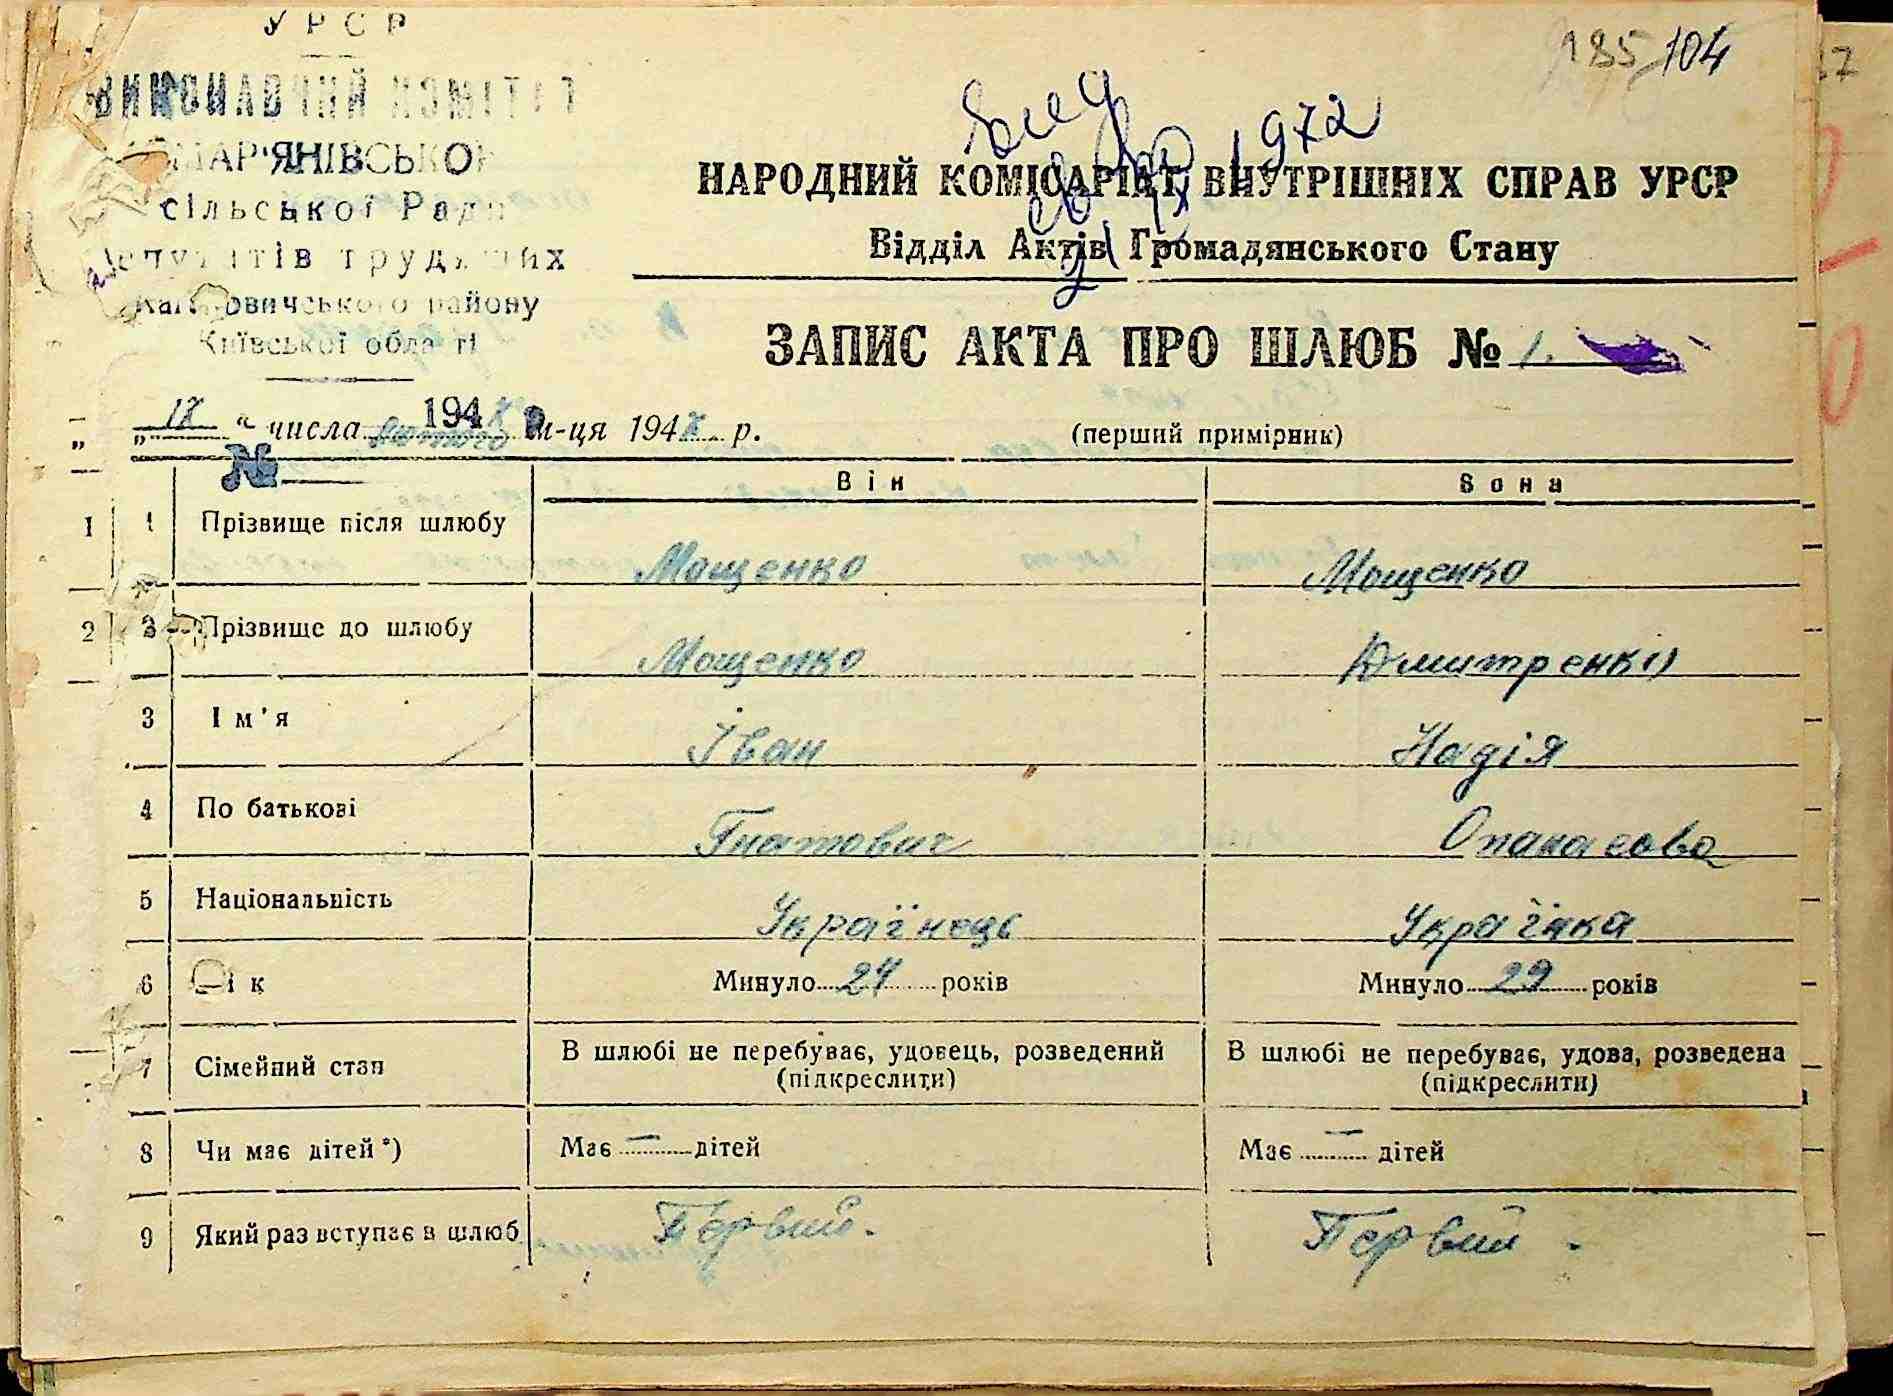 УРСР
185 104
ВИКОНАВЧИЙ КОМІТЕТ
МАР'ЯНІВСЬКОЇ
сільської Ради
депутатів трудящих
Кагановичського району
Київської області
1972
НАРОДНИЙ КОМІСАРІАТ ВНУТРІШНІХ СПРАВ УРСР
Відділ Актів Громадянського Стану
ЗАПИС АКТА ПРО ШЛЮБ № 1.
„ IX “ числа лютого м-ця 194 р.
194
(перший примірник)
№
Він Вона
1 1 Прізвище після шлюбу Мощенко Мощенко
2 2 Прізвище до шлюбу Мощенко Дмитренко
3 Ім'я Іван Надія
4 По батькові Гнатович Опанасовa
5 Національність Українець Українка
6 Вік Минуло 24 років Минуло 29 років
7 Сімейний стан В шлюбі не перебуває, удовець, розведений (підкреслити) В шлюбі не перебуває, удова, розведена (підкреслити)
8 Чи має дітей*) Має — дітей Має — дітей
9 Який раз вступає в шлюб Первий. Первий.